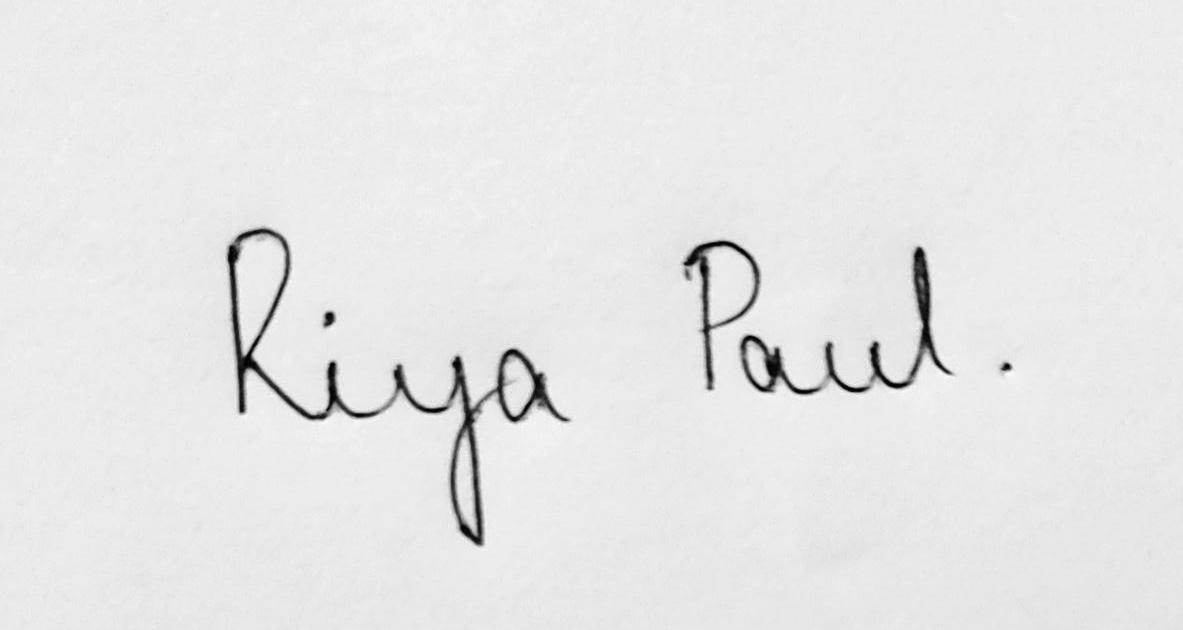 Riya Paul.